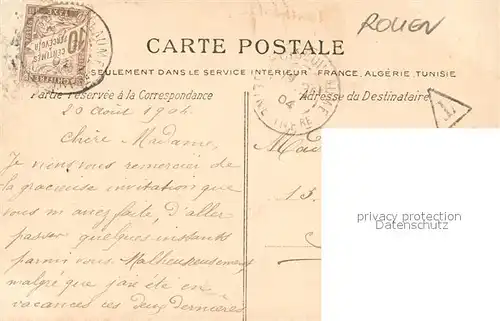 ROUEN
CARTE POSTALE
SEULEMENT DANS LE SERVICE INTERIEUR FRANCE, ALGÉRIE TUNISIE
Partie réservée à la Correspondance
Adresse du Destinataire
20 Août 1904
Chère Madame,
Je viens vous remercier de
la gracieuse invitation que
vous m'avez faite, d'aller
passer quelques instants
parmi vous. Malheureusement
malgré que j'aie été en
vacances ces deux dernières
13.
T
10
CENTIMES
A PERCEVOIR
privacy protection
Datenschutz